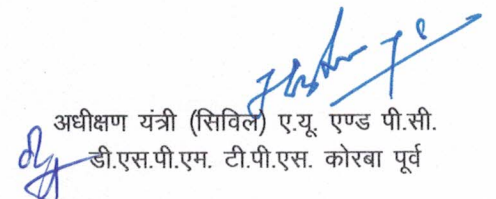 अधीक्षण यंत्री (सिविल) ए.यू. एण्ड पी.सी.
डी.एस.पी.एम. टी.पी.एस. कोरबा पूर्व